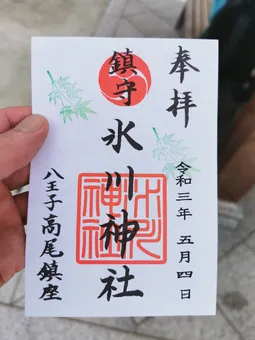 奉拝
令和三年 五月四日
鎮守 氷川神社
氷川神社
八王子高尾鎮座